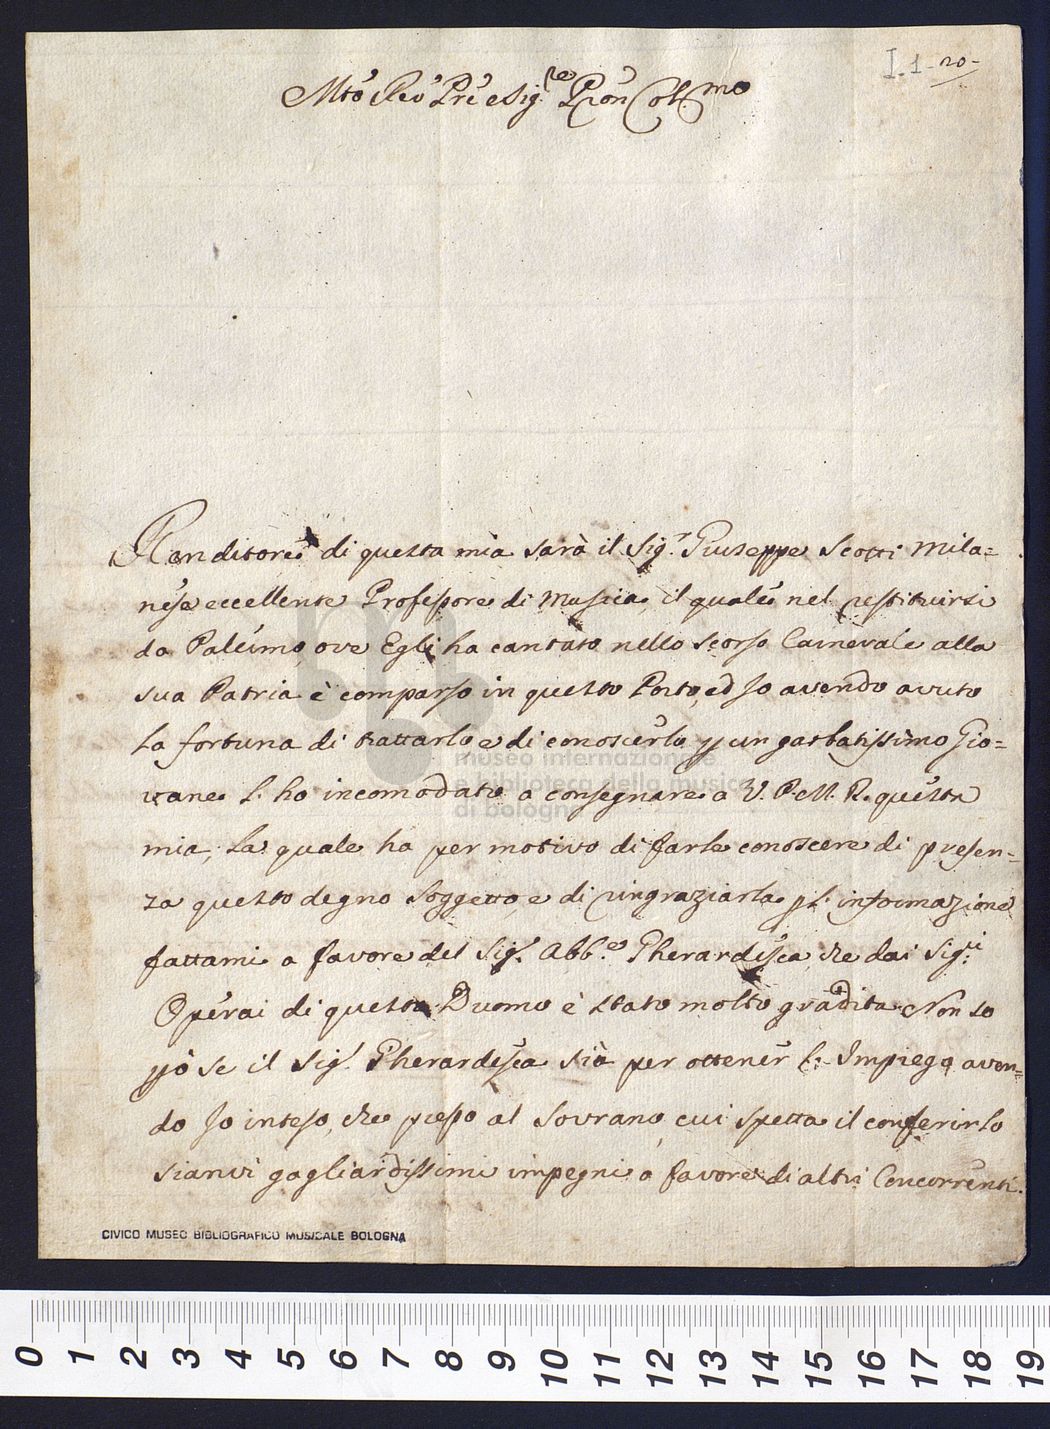 I.1-20-
Mto Reo Pre e Sig.re Pron Col.mo
Renditore di questa mia sarà il Sig.r Giuseppe Scotti Mila=
nese eccellente Professore di Musica, il quale nel restituirsi
da Palermo, ove Egli ha cantato nello scorso Carnevale alla
sua Patria è comparso in questo Porto, ed Io avendo avuto
la fortuna di trattarlo e di conoscerlo p un garbatissimo Gio=
vane l'ho incomodato a consegnare a V. P. M. R. questa
mia, la quale ha per motivo di farle conoscere di presen=
za questo degno Soggetto, e di ringraziarla p l'informazione
fattami a favore del Sig.r Abb.e Gherardesca, che dai Sig.ri
Operai di questo Duomo è stato molto gradita. Non so
pò se il Sig.r Gherardesca sia per ottener l'Impiego, aven=
do Io inteso, che presso al Sovrano, cui spetta il conferirlo
sianvi gagliardissimi impegni a favore di altri Concorrenti.
museo internazionale
e biblioteca della musica
di bologna
CIVICO MUSEO BIBLIOGRAFICO MUSICALE BOLOGNA
0 1 2 3 4 5 6 7 8 9 10 11 12 13 14 15 16 17 18 19